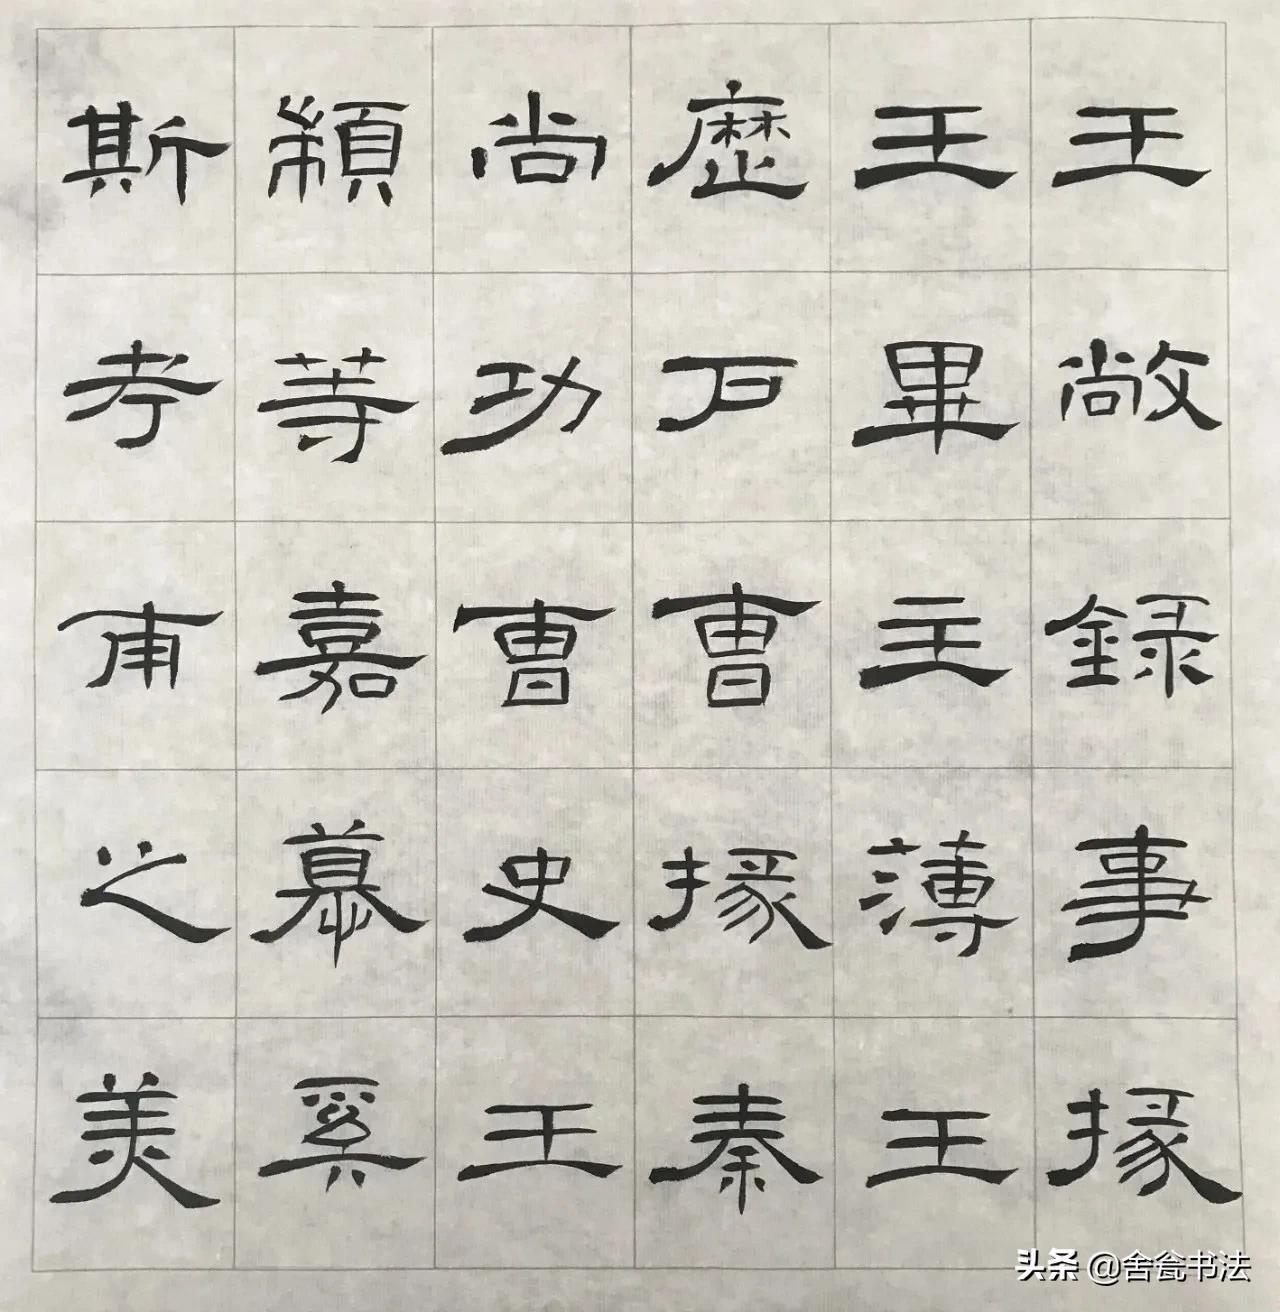 王敞錄事掾
王畢主薄王
歷戶曹掾秦
尚功曹史王
顈等嘉慕奚
斯考甫之美
头条 @舍瓮书法